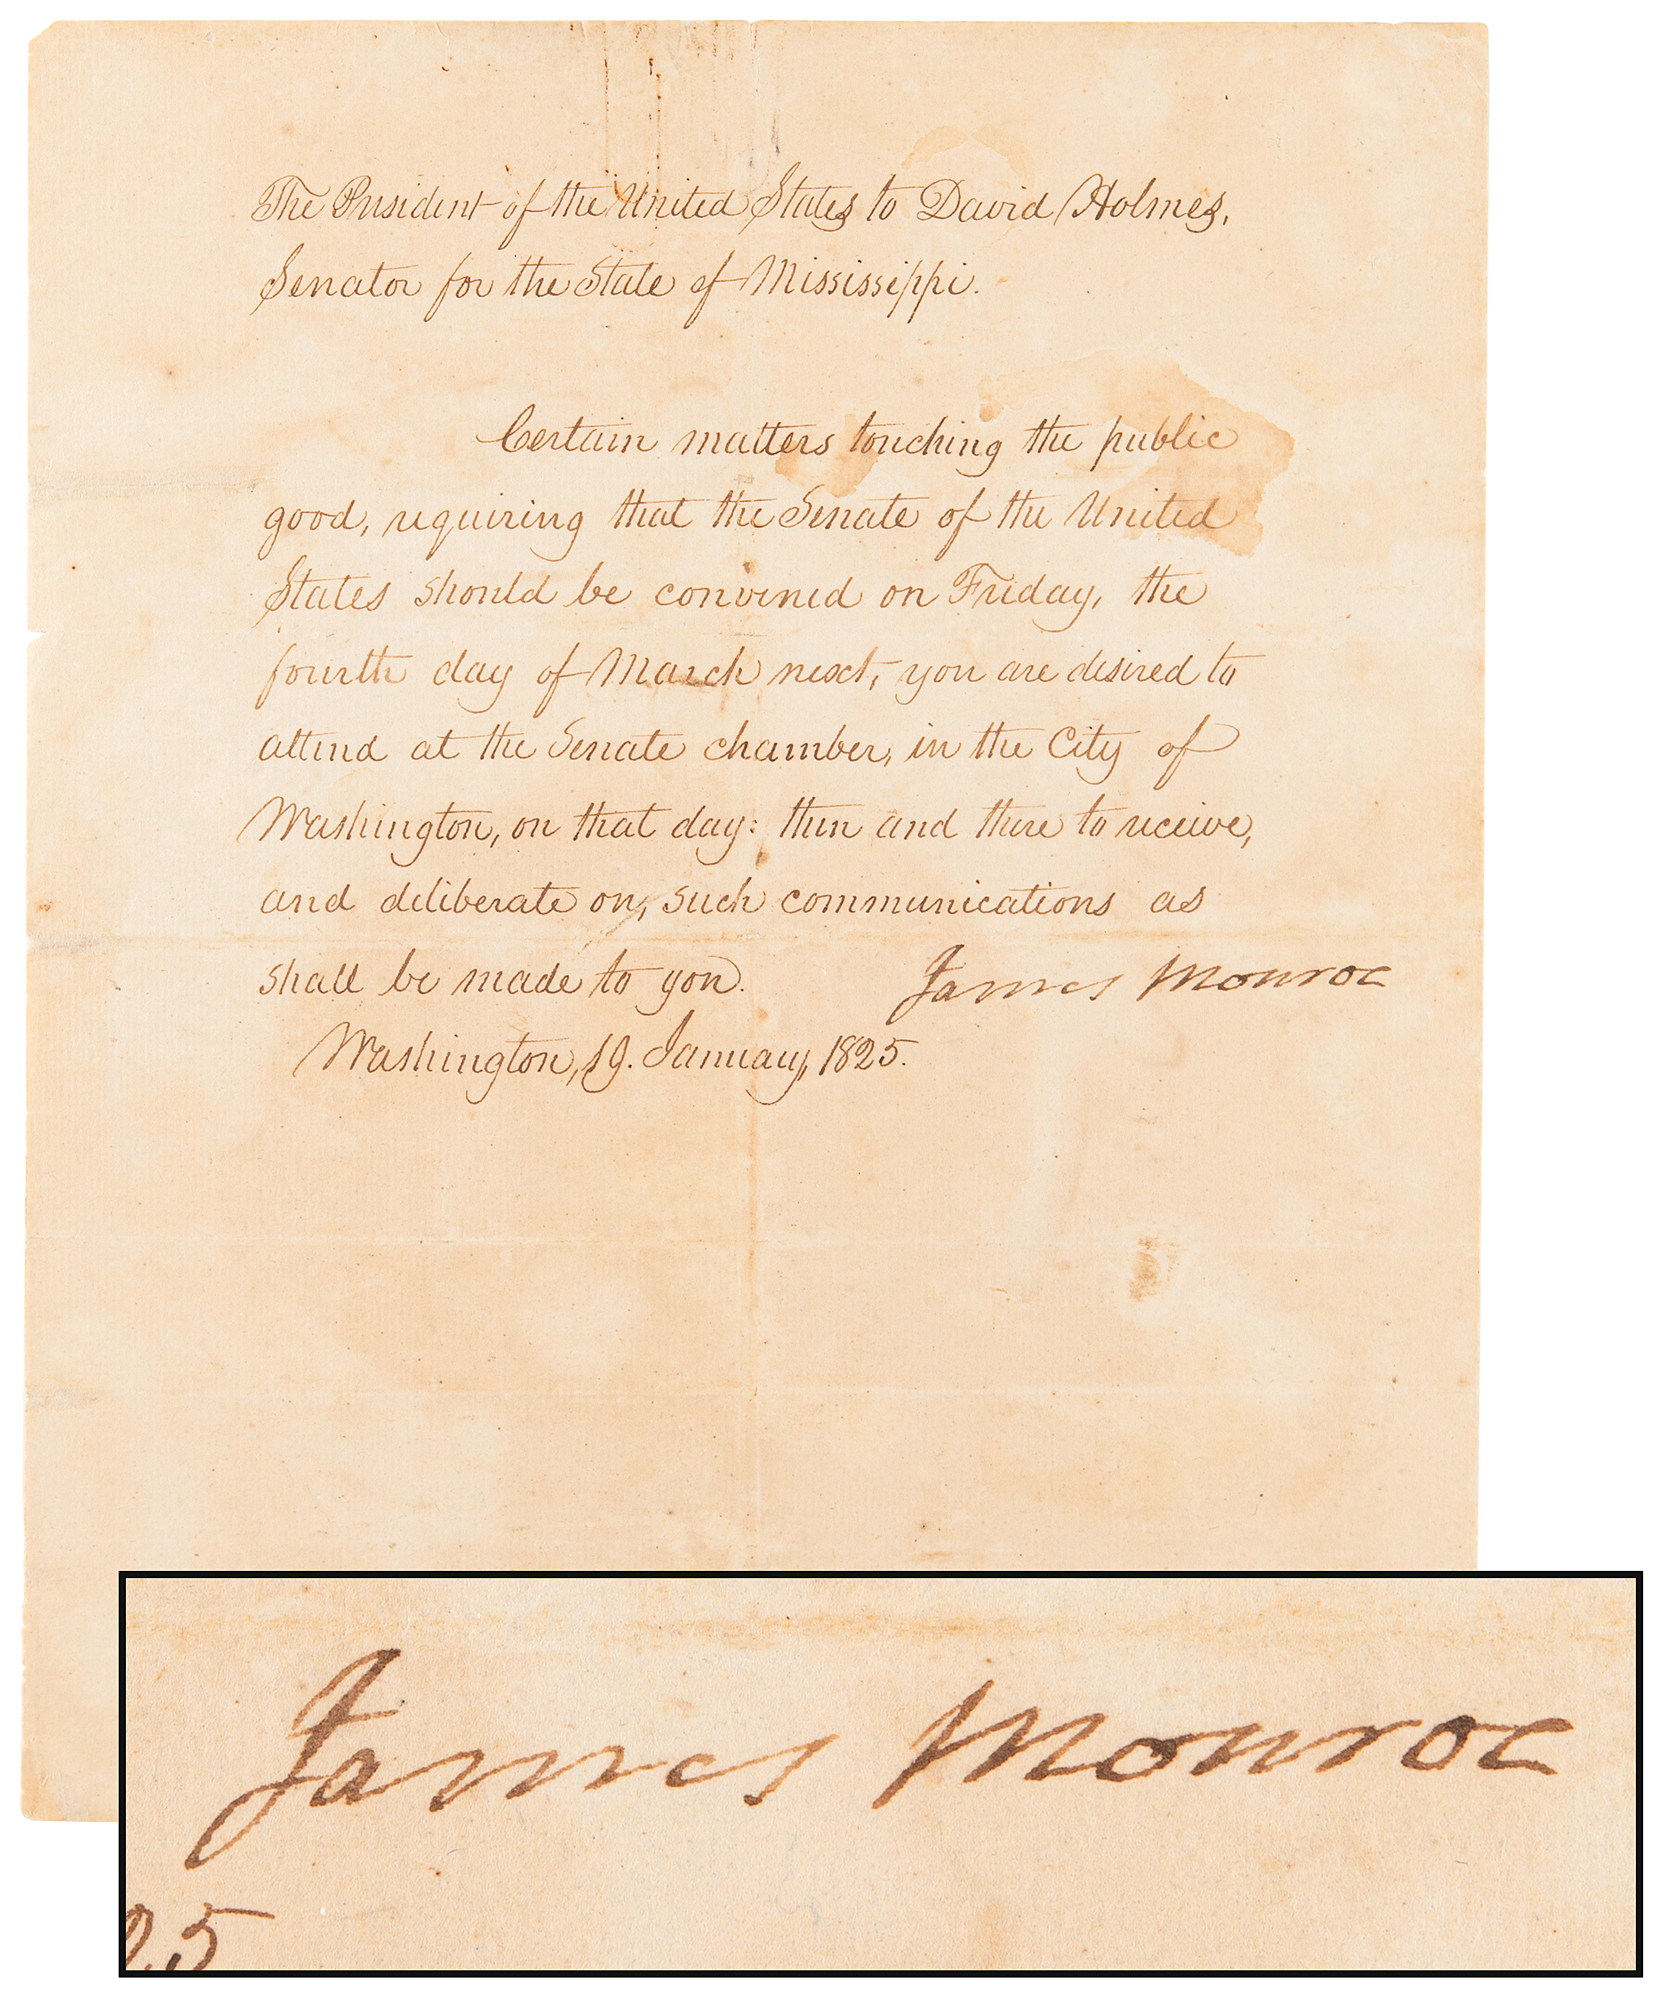 The President of the United States to David Holmes,
Senator for the State of Mississippi.
Certain matters touching the public
good, requiring that the Senate of the United
States should be convened on Friday, the
fourth day of March next, you are desired to
attend at the Senate chamber, in the City of
Washington, on that day: then and there to receive,
and deliberate on, such communications as
shall be made to you.
James Monroe
Washington, 19. January, 1825.
James Monroe
25